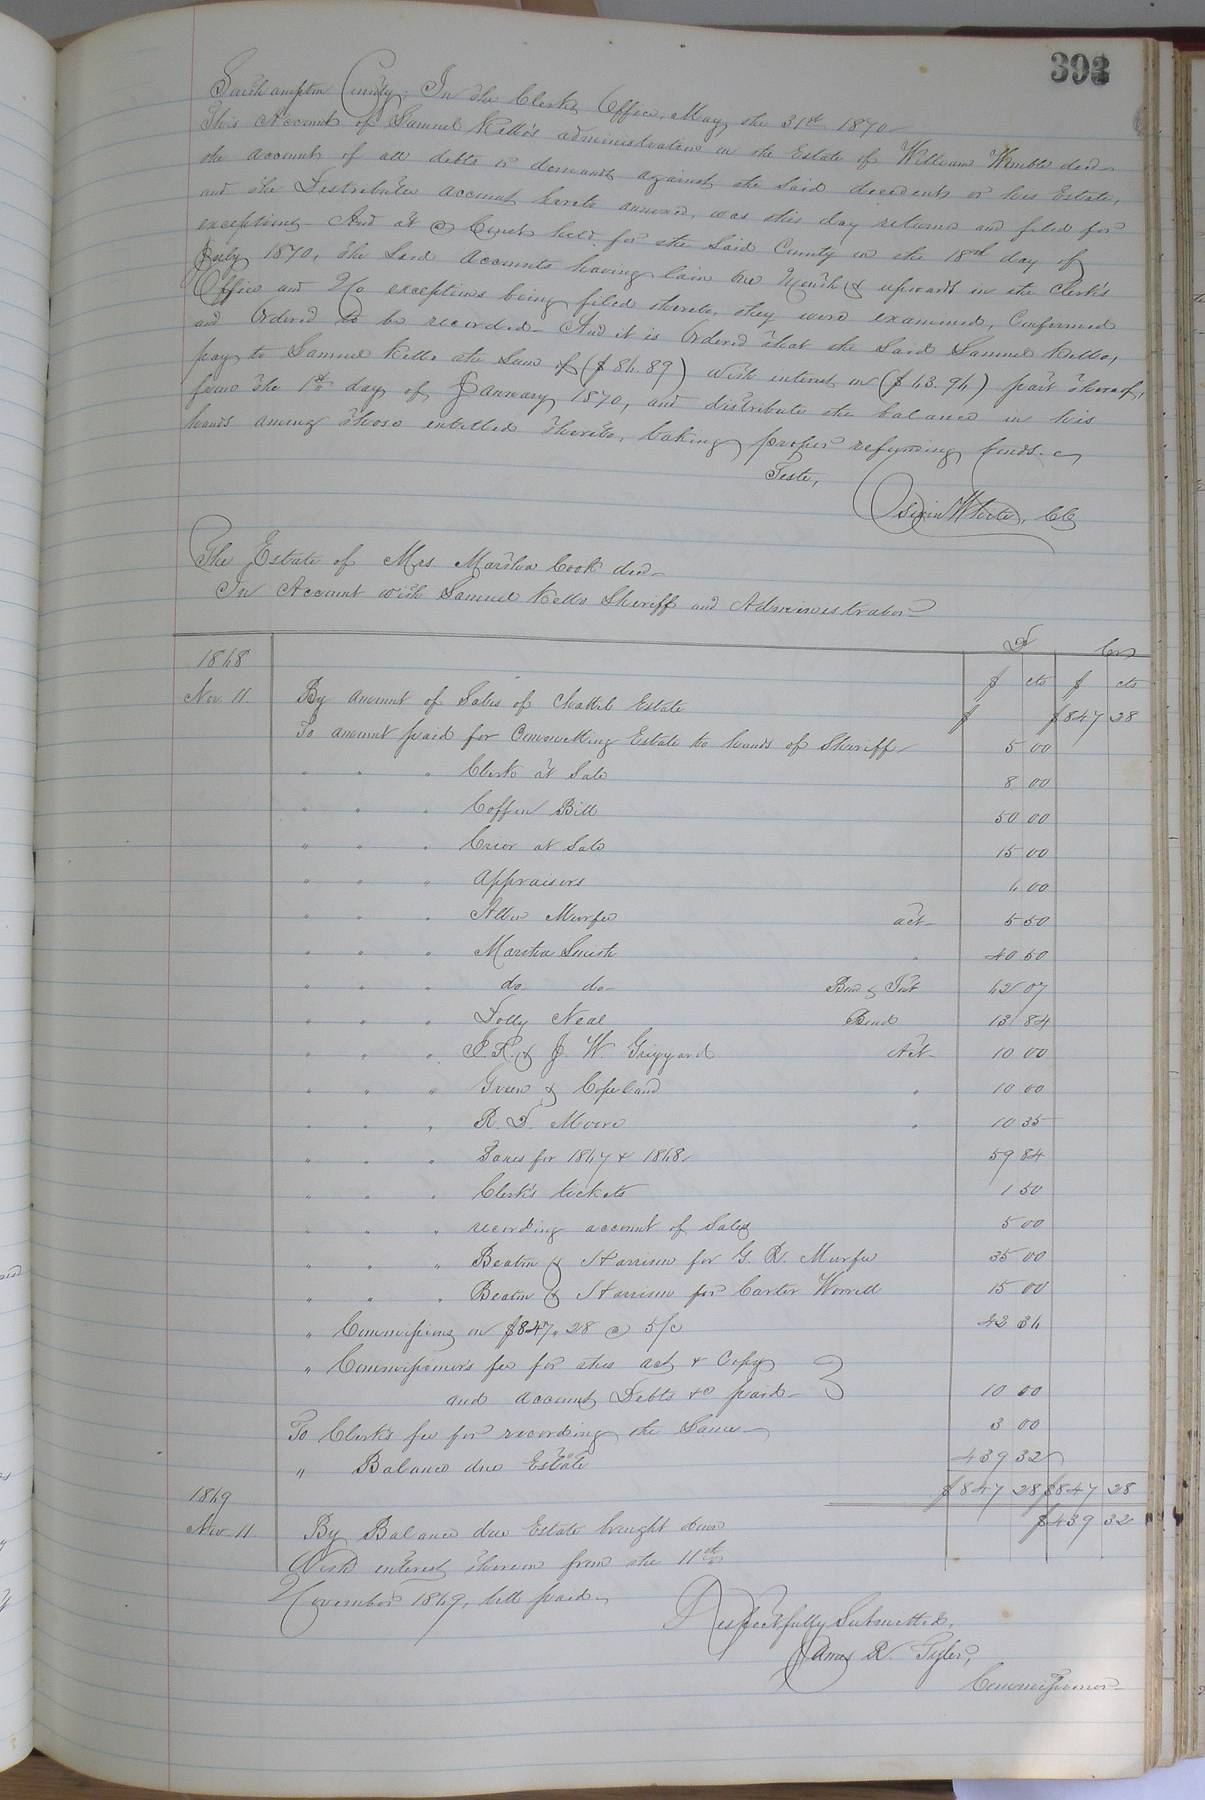 393
Southampton County: In the Clerks Office, May the 31st 1870
This Account of Samuel Kello's administration on the Estate of William Womble decd
the account of all debts or demands against the said decedents or his Estate,
and the Distributive account hereto annexed, was this day returned and filed for
exceptions - And at a Court held for the said County on the 18th day of
July 1870, the said Accounts having lain one Month & upwards in the Clerk's
Office and No exceptions being filed thereto, they were examined, Confirmed
and Ordered to be recorded - And it is Ordered that the said Samuel Kello,
pay to Samuel Kello the Sum of ($86.89) with interest on ($63.94) part thereof,
from the 1st day of January 1870, and distribute the balance in his
hands among those entitled thereto, taking proper refunding bonds.
Teste,
White, CC
The Estate of Mrs. Martha Cook decd
In Account with Samuel Kello Sheriff and Administrator
D Cr
1868 $ cts $ cts
Nov. 11. By amount of Sales of Chattle Estate $ $847 28
To amount paid for Committing Estate to hands of Sheriff 5 00
" " " Clerk at Sale 8 00
" " " Coffin Bill 50 00
" " " Crier at Sale 15 00
" " " Appraisers 6 00
" " " Murfee act 5 50
" " " Martha Smith " 40 50
" " " do do Bond & Int 62 07
" " " Dolly Neal Bond 13 84
" " " J. R. & J W Griggard Act 10 00
" " " Green & Copeland " 10 00
" " " R. D. Moore " 10 35
" " " Taxes for 1867 & 1868 59 84
" " " Clerk's tickets 1 50
" " " recording account of Sales 5 00
" " " Beaton & Harrison for G. R. Murfee 35 00
" " " Beaton & Harrison for Carter Worrell 15 00
" Commissions on $847.28 @ 5/c 42 36
" Commissioner's fee for this act & Copy
and account Debts &c paid 10 00
To Clerk's fee for recording the Same 3 00
" Balance due Estate 439 32
1869 $847 28 $847 28
Nov. 11. By Balance due Estate brought down $439 32
With interest thereon from the 11th
November 1869, till paid
Respectfully Submitted,
James R. Tyler,
Commissioner